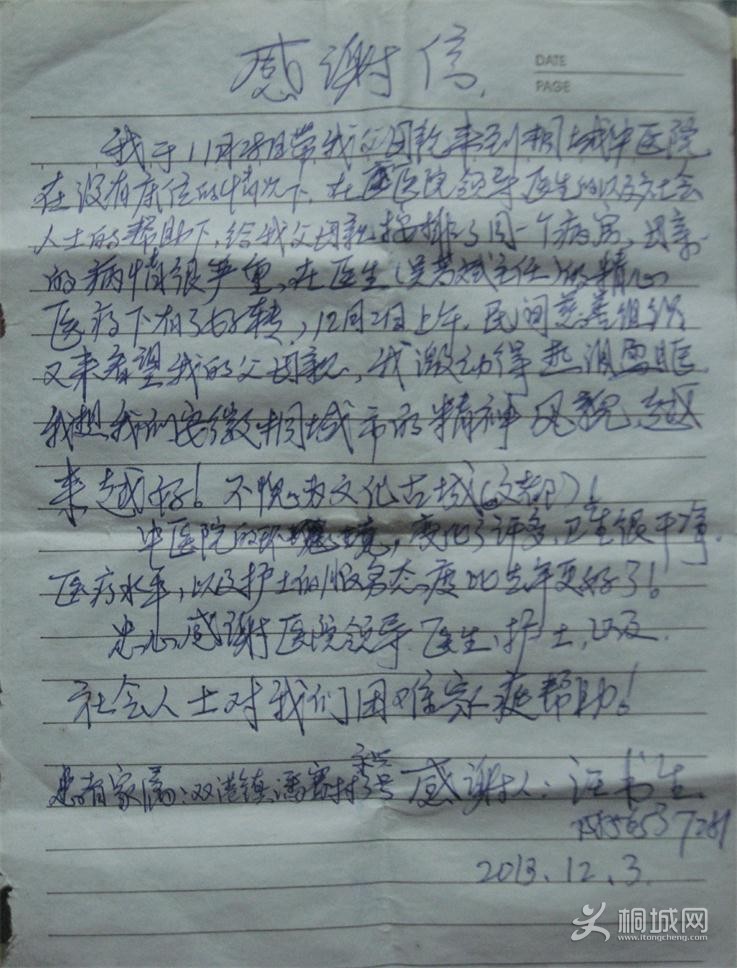 感谢信
DATE
PAGE
我于11月28日带我父母亲来到桐城中医院
在没有床位的情况下,在医院领导医生的以及社会
人士的帮助下,给我父母亲按排了同一个病房,母亲
的病情很严重,在医生(吴 主任)的精心
医疗下有了好转,12月2日上午,民间慈善组织
又来看望我的父母亲,我激动得热泪盈眶
我想我们安徽桐城市的精神风貌,越
来越好!不愧为文化古城(文都)!
中医院的环境,变化了许多,卫生很干净,
医疗水平,以及护士的服务态度比去年更好了!
忠心感谢医院领导医生、护士,以及
社会人士对我们困难家庭帮助!
患者家属:双港镇潘 村 号 感谢人:汪书生
2013.12.3.
桐城网
www.itongcheng.com